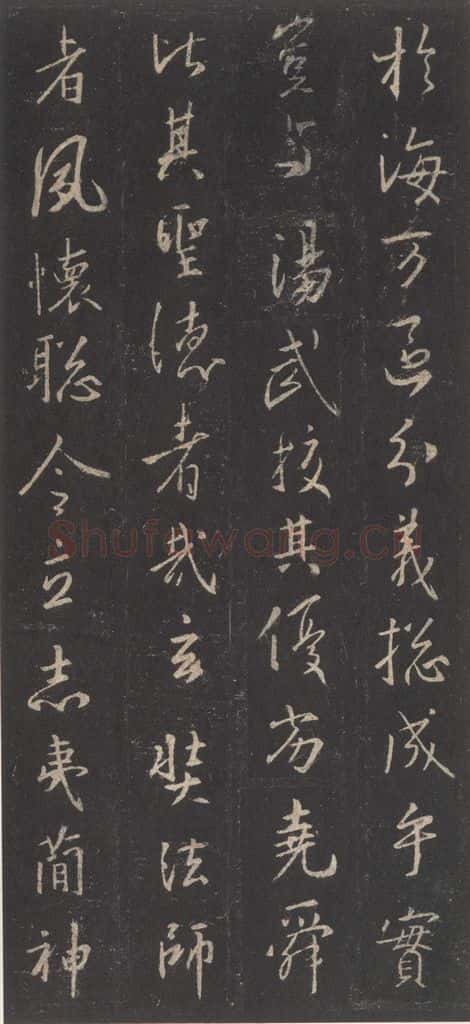 於海万區分義揔成乎實
豈与湯武挍其優劣堯舜
比其聖徳者哉玄奘法師
者夙懷聡令立志夷簡神
Shufawang.cn